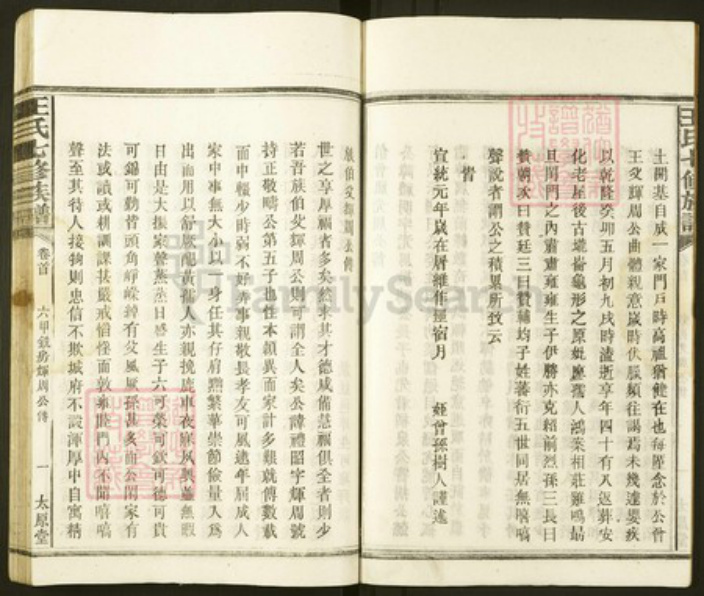 土開基自成一家門戶時高禮猶健在也每厪念於公曾
王父輝周公曲體親意歲時伏臘頻往謁焉未幾遘嬰疾
以乾隆癸卯五月初九戌時溘逝享年四十有八返葬安
化老屋後古壠崙龜形之原妣廖孺人鴻案相莊雞鳴最
且閨門之內肅肅雍雍生子伊勝亦克紹前烈孫三長曰
贊朝次曰贊廷三曰贊輔均子姓蕃衍五世同居無嘻嗃
聲說者謂公之積累所致云
皆
宣統元年歲在屠維作噩宿月
姪曾孫樹人謹述
族伯父輝周公傳
世之享厚福者多矣然求其才德咸備慧福俱全者則少
若吾族伯父輝周公則可謂全人矣公諱禮昭字輝周號
持正敬疇公第五子也性本穎異而家計多艱就傅數載
而中輟少時弱不好弄事親敬長孝友可風迨年屆成人
家中事無大小以一身任其仔肩黜繁華崇節儉量入為
出而用以舒厥配黃孺人亦親挽鹿車夜寐夙興無暇
日由是大振家聲蒸蒸日盛生子六可榮可欽可德可貴
可錫可勤皆頭角崢嶸綽有父風厥孫甚多而公閑家有
法或讀或耕訓課甚嚴戒惰怪面敦雍睦門內不聞嘻嗃
聲至其待人接物則忠信不欺城府不設渾厚中自寓精
王氏七修族譜
卷首
六甲鏡房輝周公傳
一
太原堂
王氏七修族譜
FamilySearch